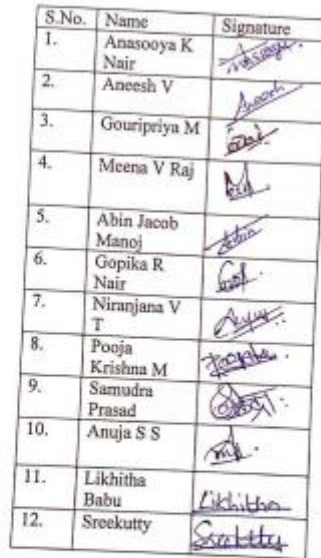 S.No. Name Signature
1. Anasooya K
Nair Anasooya
2. Aneesh V Aneesh
3. Gouripriya M
4. Meena V Raj
5. Abin Jacob
Manoj Abin
6. Gopika R
Nair
7. Niranjana V
T
8. Pooja
Krishna M
9. Samudra
Prasad
10. Anuja S S
11. Likhitha
Babu Likhitha
12. Sreekutty Sreekutty